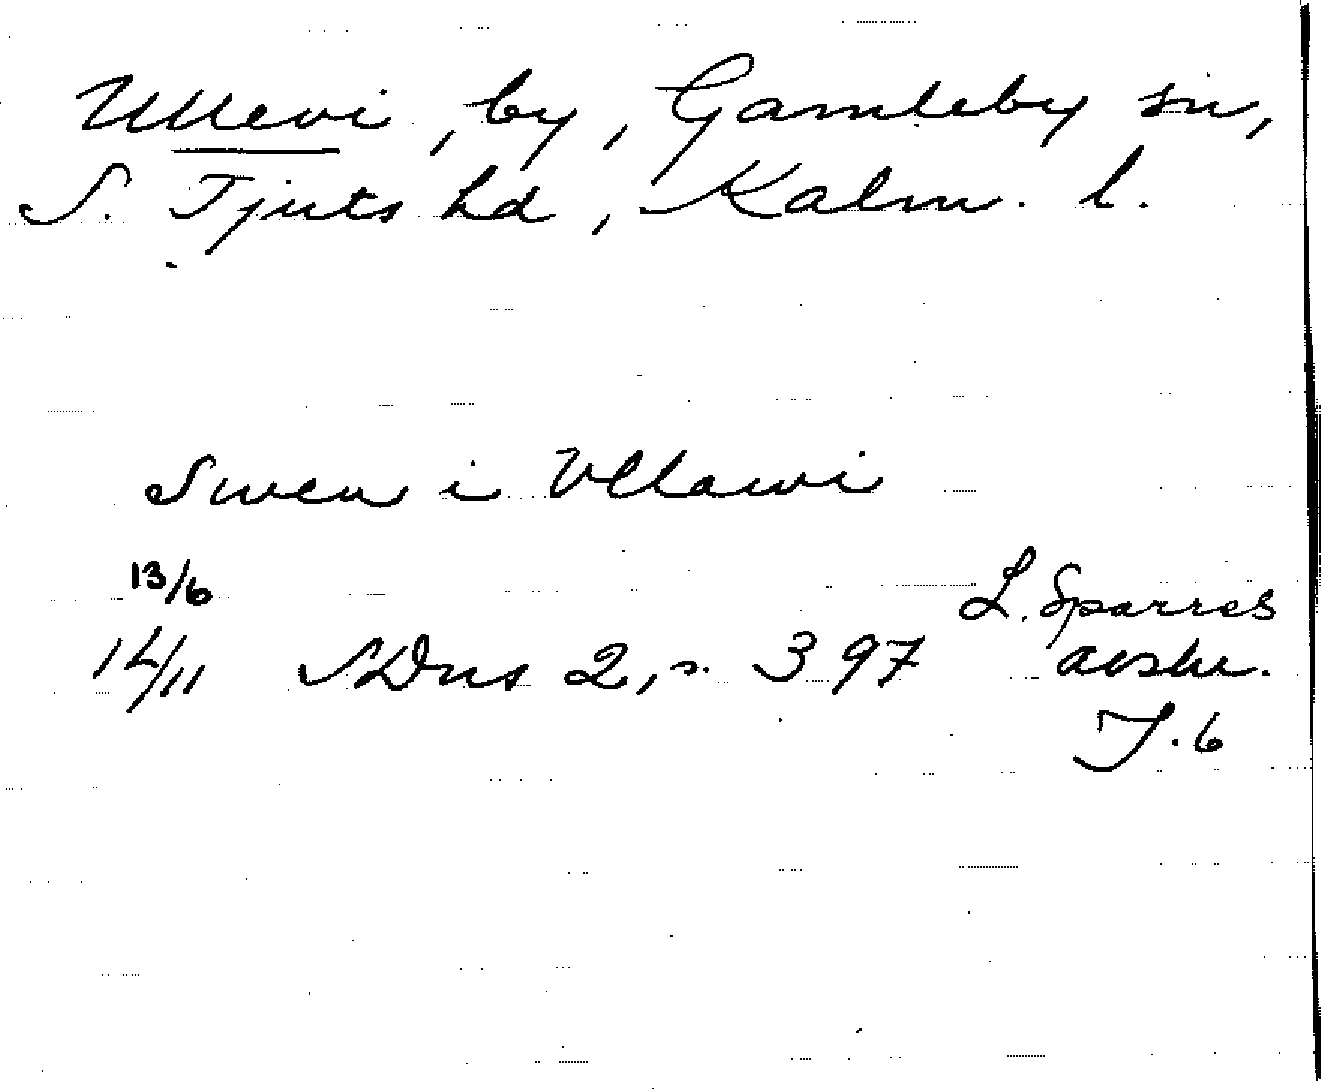 Ullevi, by, Gamleby sn,
S. Tjusts hd, Kalm. l.
Swen i Vllawi
13/6
14/11 SDns 2, s. 397
L. Sparres
avskr.
T. 6